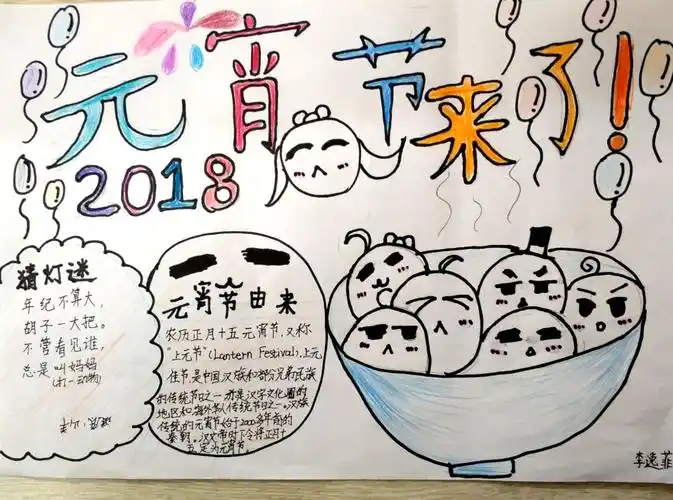 元宵节来了!
2018
猜灯谜
年纪不算大,
胡子一大把。
不管看见谁,
总是叫妈妈
(打一动物)
元宵节由来
农历正月十五元宵节,又称
"上元节"(Lantern Festival),上元
佳节,是中国汉族和部分兄弟民族
的传统节日之一,亦是汉字文化圈的
地区和海外华人传统节日之一。汉族
传统的元宵节始于2000多年前的
秦朝。汉文帝时下令将正月十
五定为元宵节。
李逸菲